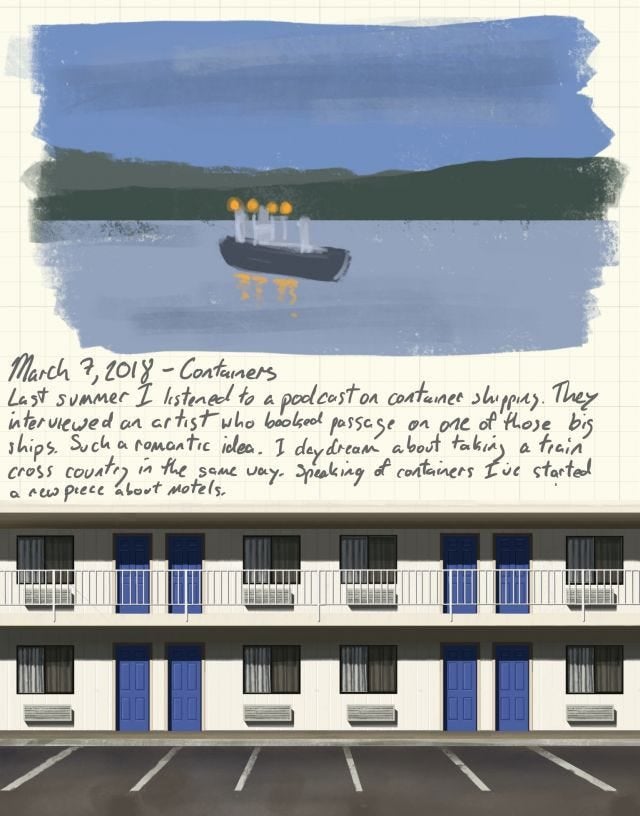 March 7, 2018 - Containers
Last summer I listened to a podcast on container shipping. They
interviewed an artist who booked passage on one of those big
ships. Such a romantic idea. I daydream about taking a train
cross country in the same way. Speaking of containers I've started
a new piece about motels.